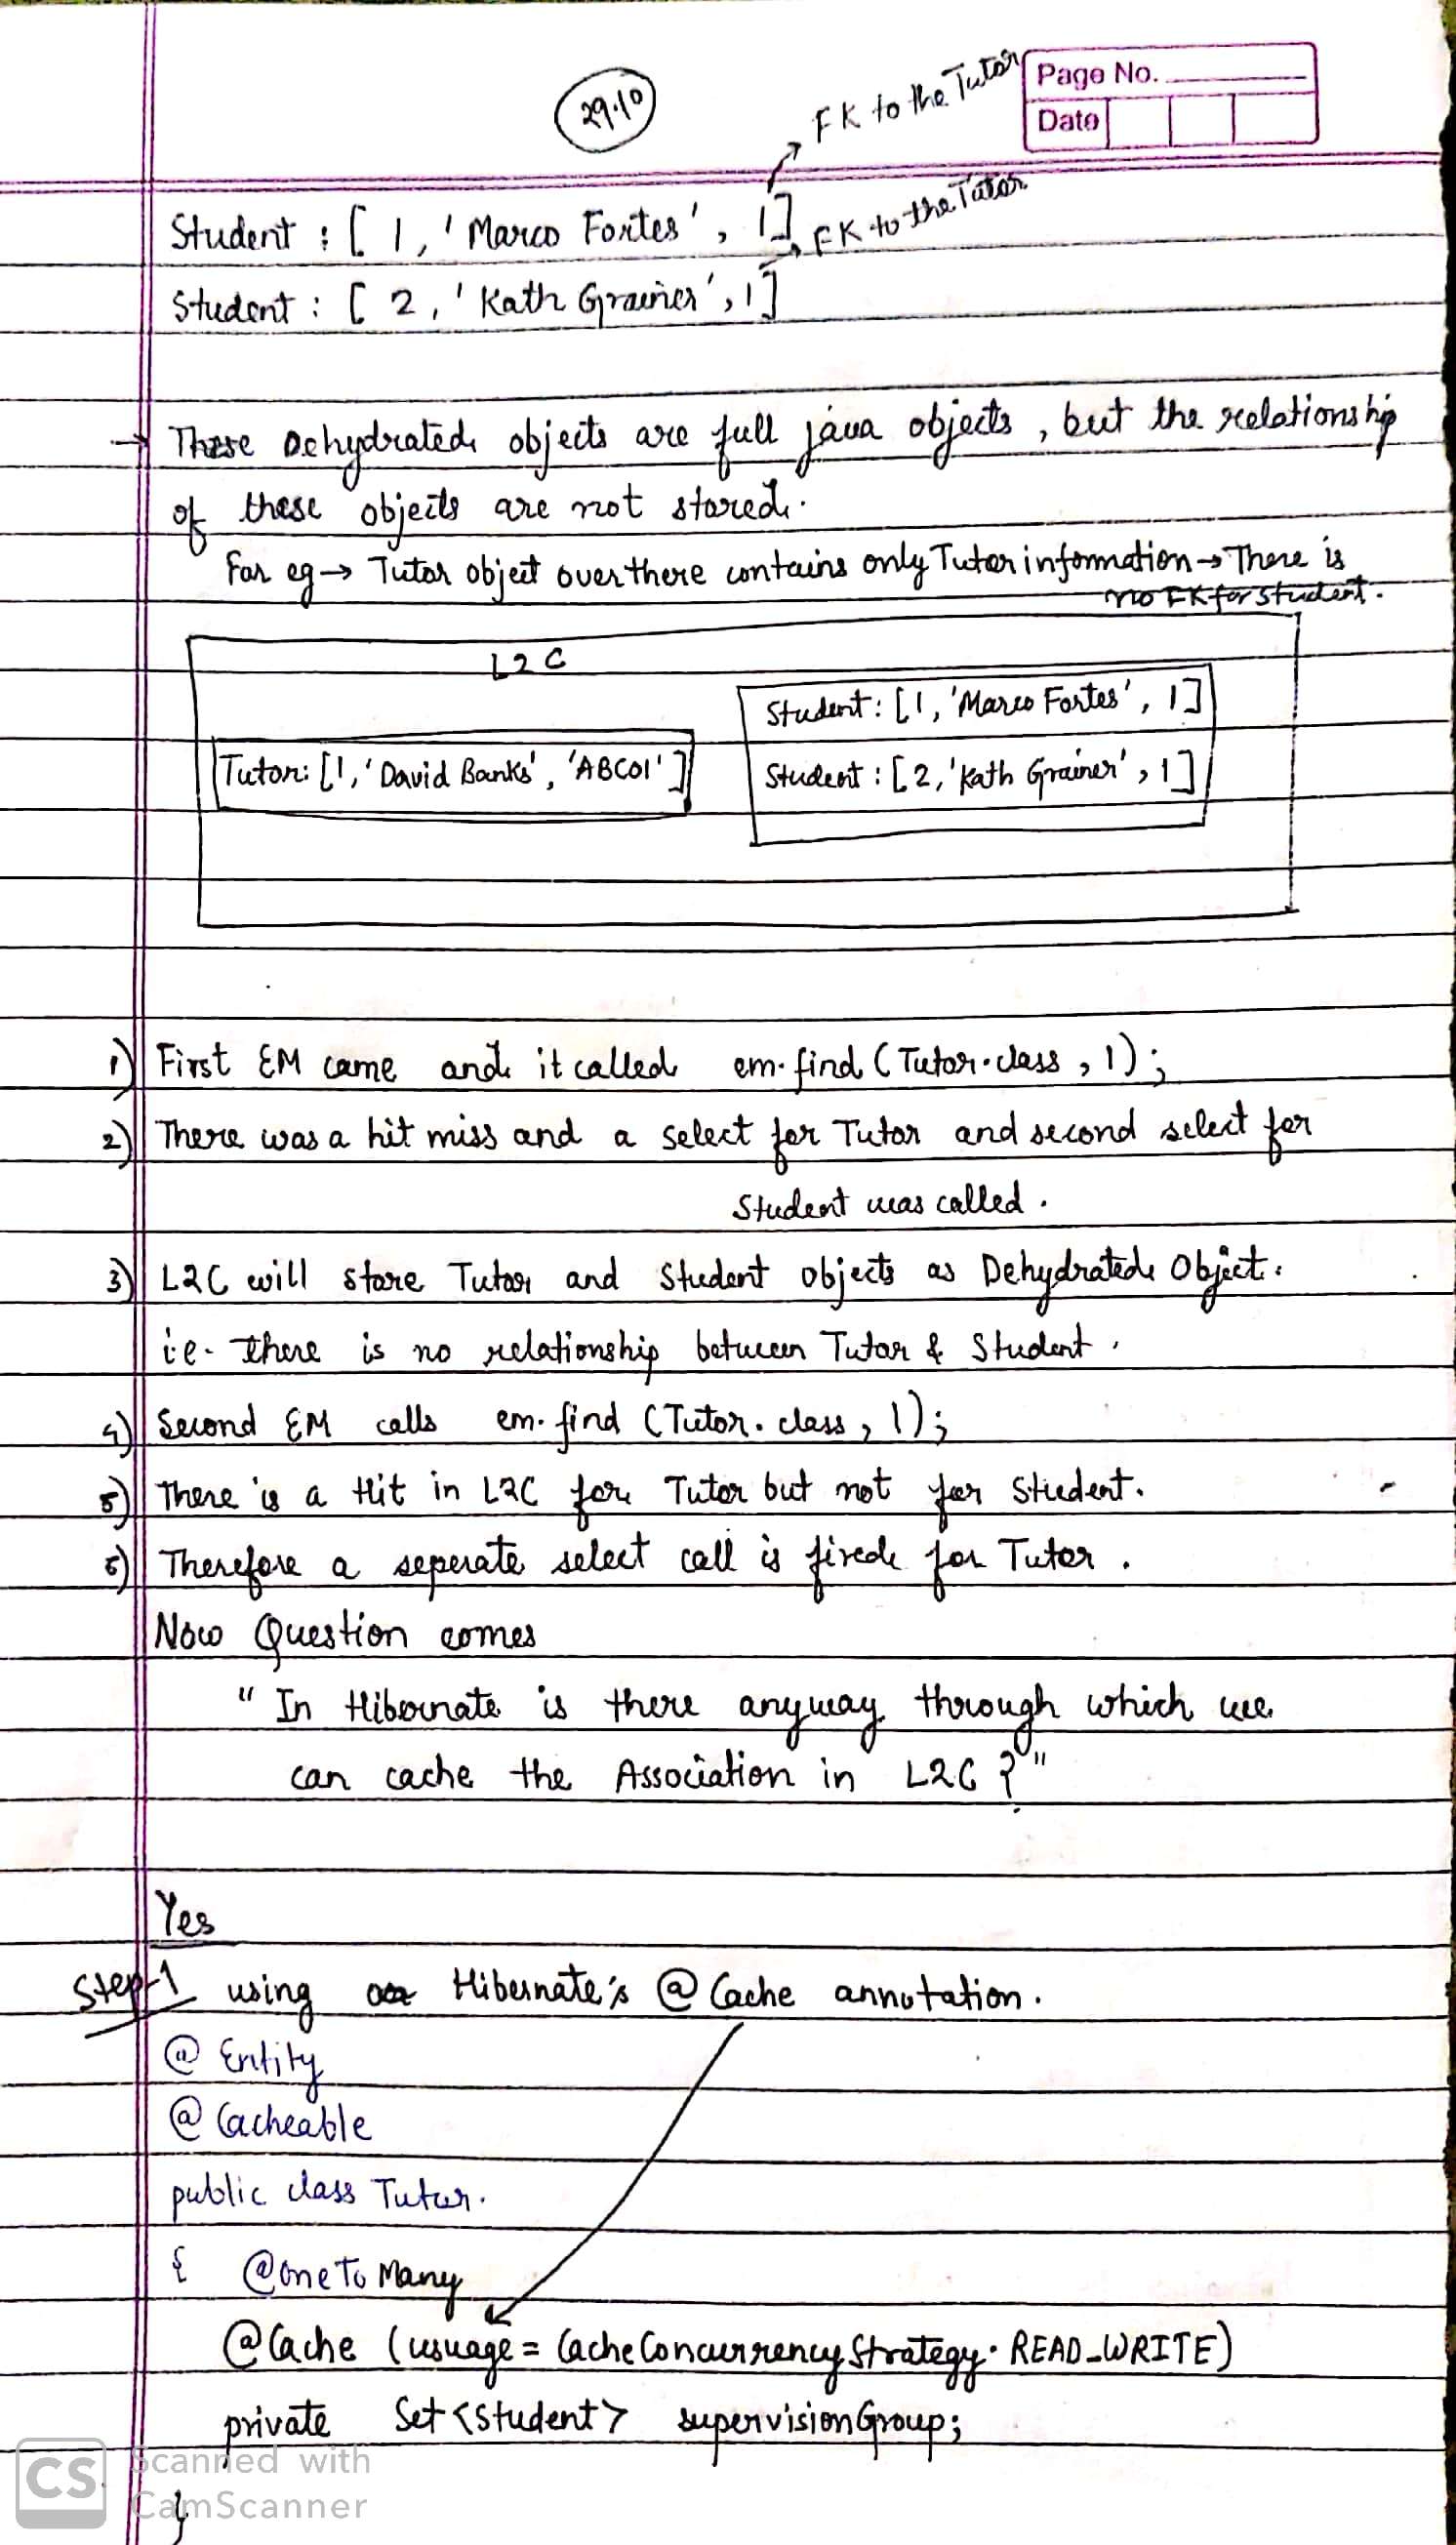 29.10
FK to the Tutor
Page No.
Date
Student : [ 1, ' Marco Fortes' , 1]
FK to the Tutor
Student : [ 2, ' Kath Grainer' , 1]
→ These Dehydrated objects are full java objects , but the relationship
of these objects are not stored.
For eg → Tutor object over there contains only Tutor information → There is
no FK for student.
L2C
Student : [1, 'Marco Fortes' , 1]
Tutor: [1, 'David Banks' , 'ABC01' ]
Student : [2, 'Kath Grainer' , 1]
1) First EM came and it called em.find (Tutor.class , 1) ;
2) There was a hit miss and a select for Tutor and second select for
Student was called .
3) L2C will store Tutor and Student objects as Dehydrated Object.
i.e. there is no relationship between Tutor & Student .
4) Second EM calls em.find (Tutor.class , 1) ;
5) There is a Hit in L2C for Tutor but not for Student.
6) Therefore a seperate select call is fired for Tutor .
Now Question comes
" In Hibernate is there anyway through which we
can cache the Association in L2C ? "
Yes
Step-1 using Hibernate's @Cache annotation.
@Entity
@Cacheable
public class Tutor.
{ @OneToMany
@Cache (usuage = CacheConcurrencyStrategy.READ_WRITE)
private Set<Student> supervisionGroup;
}
CS Scanned with
CamScanner